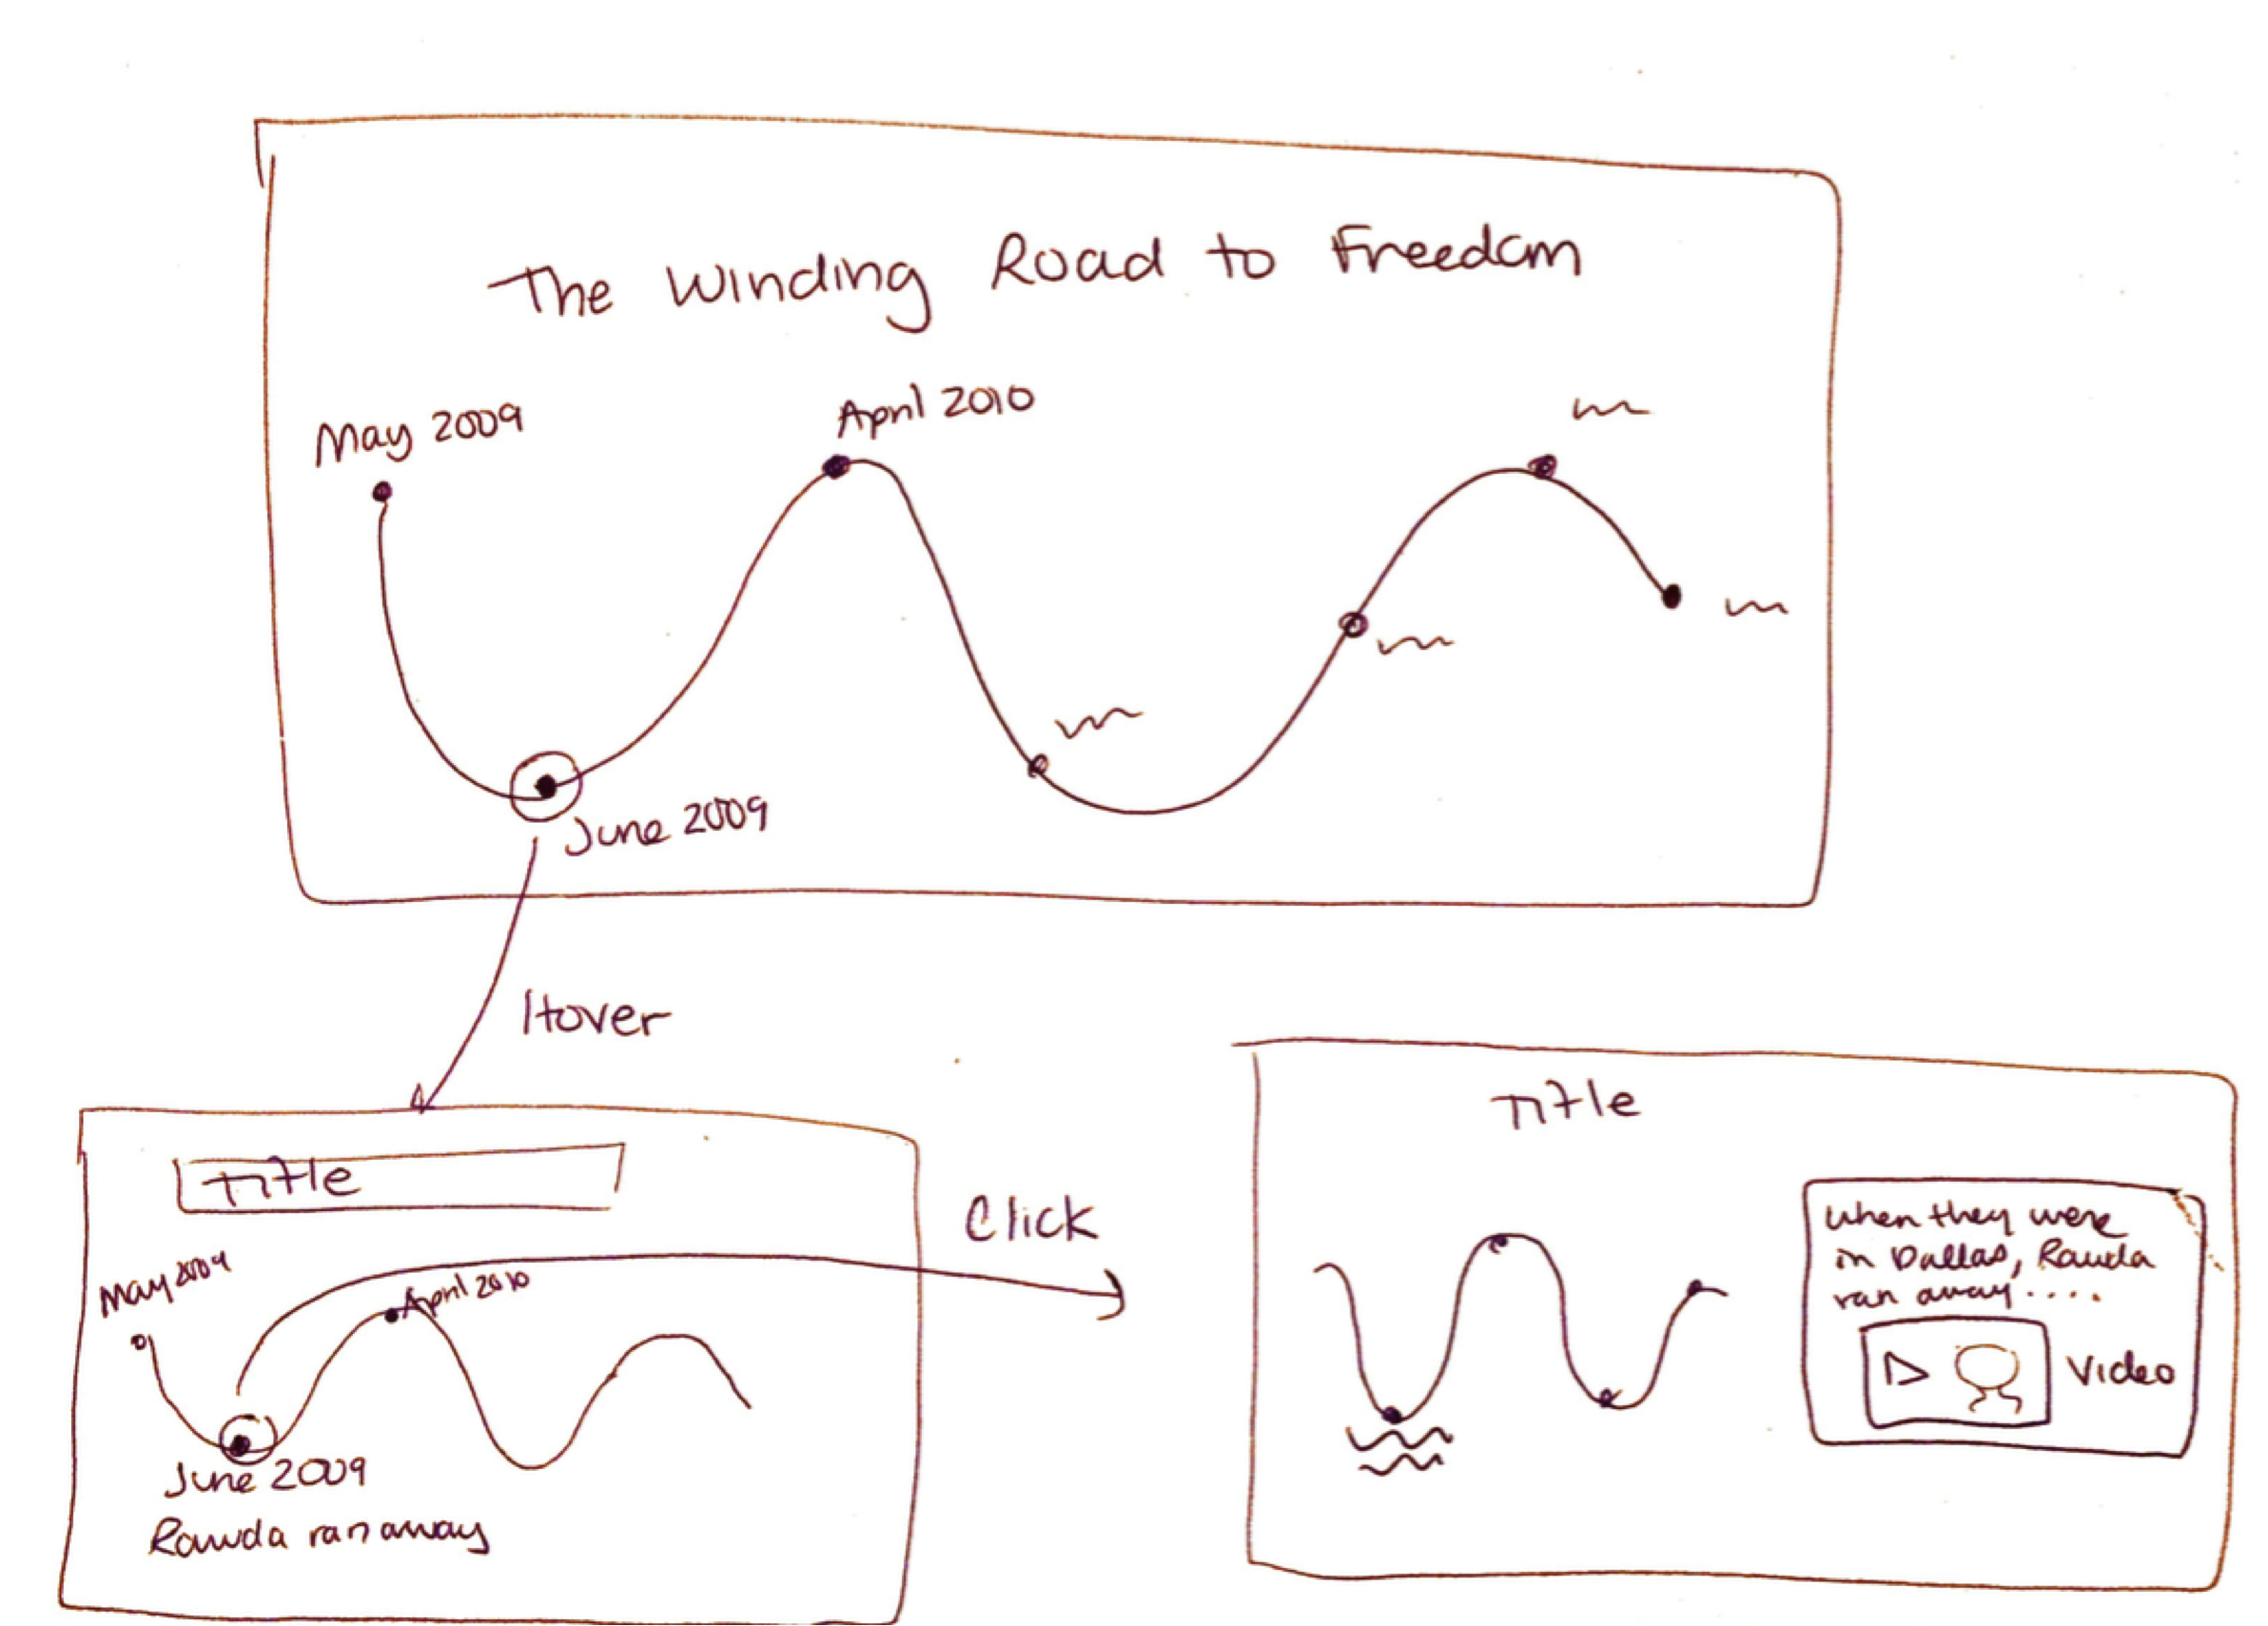 The Winding Road to Freedom
May 2009
April 2010
June 2009
Hover
Title
May 2009
April 2010
June 2009
Rawda ran away
Click
Title
When they were
in Dallas, Rawda
ran away....
Video